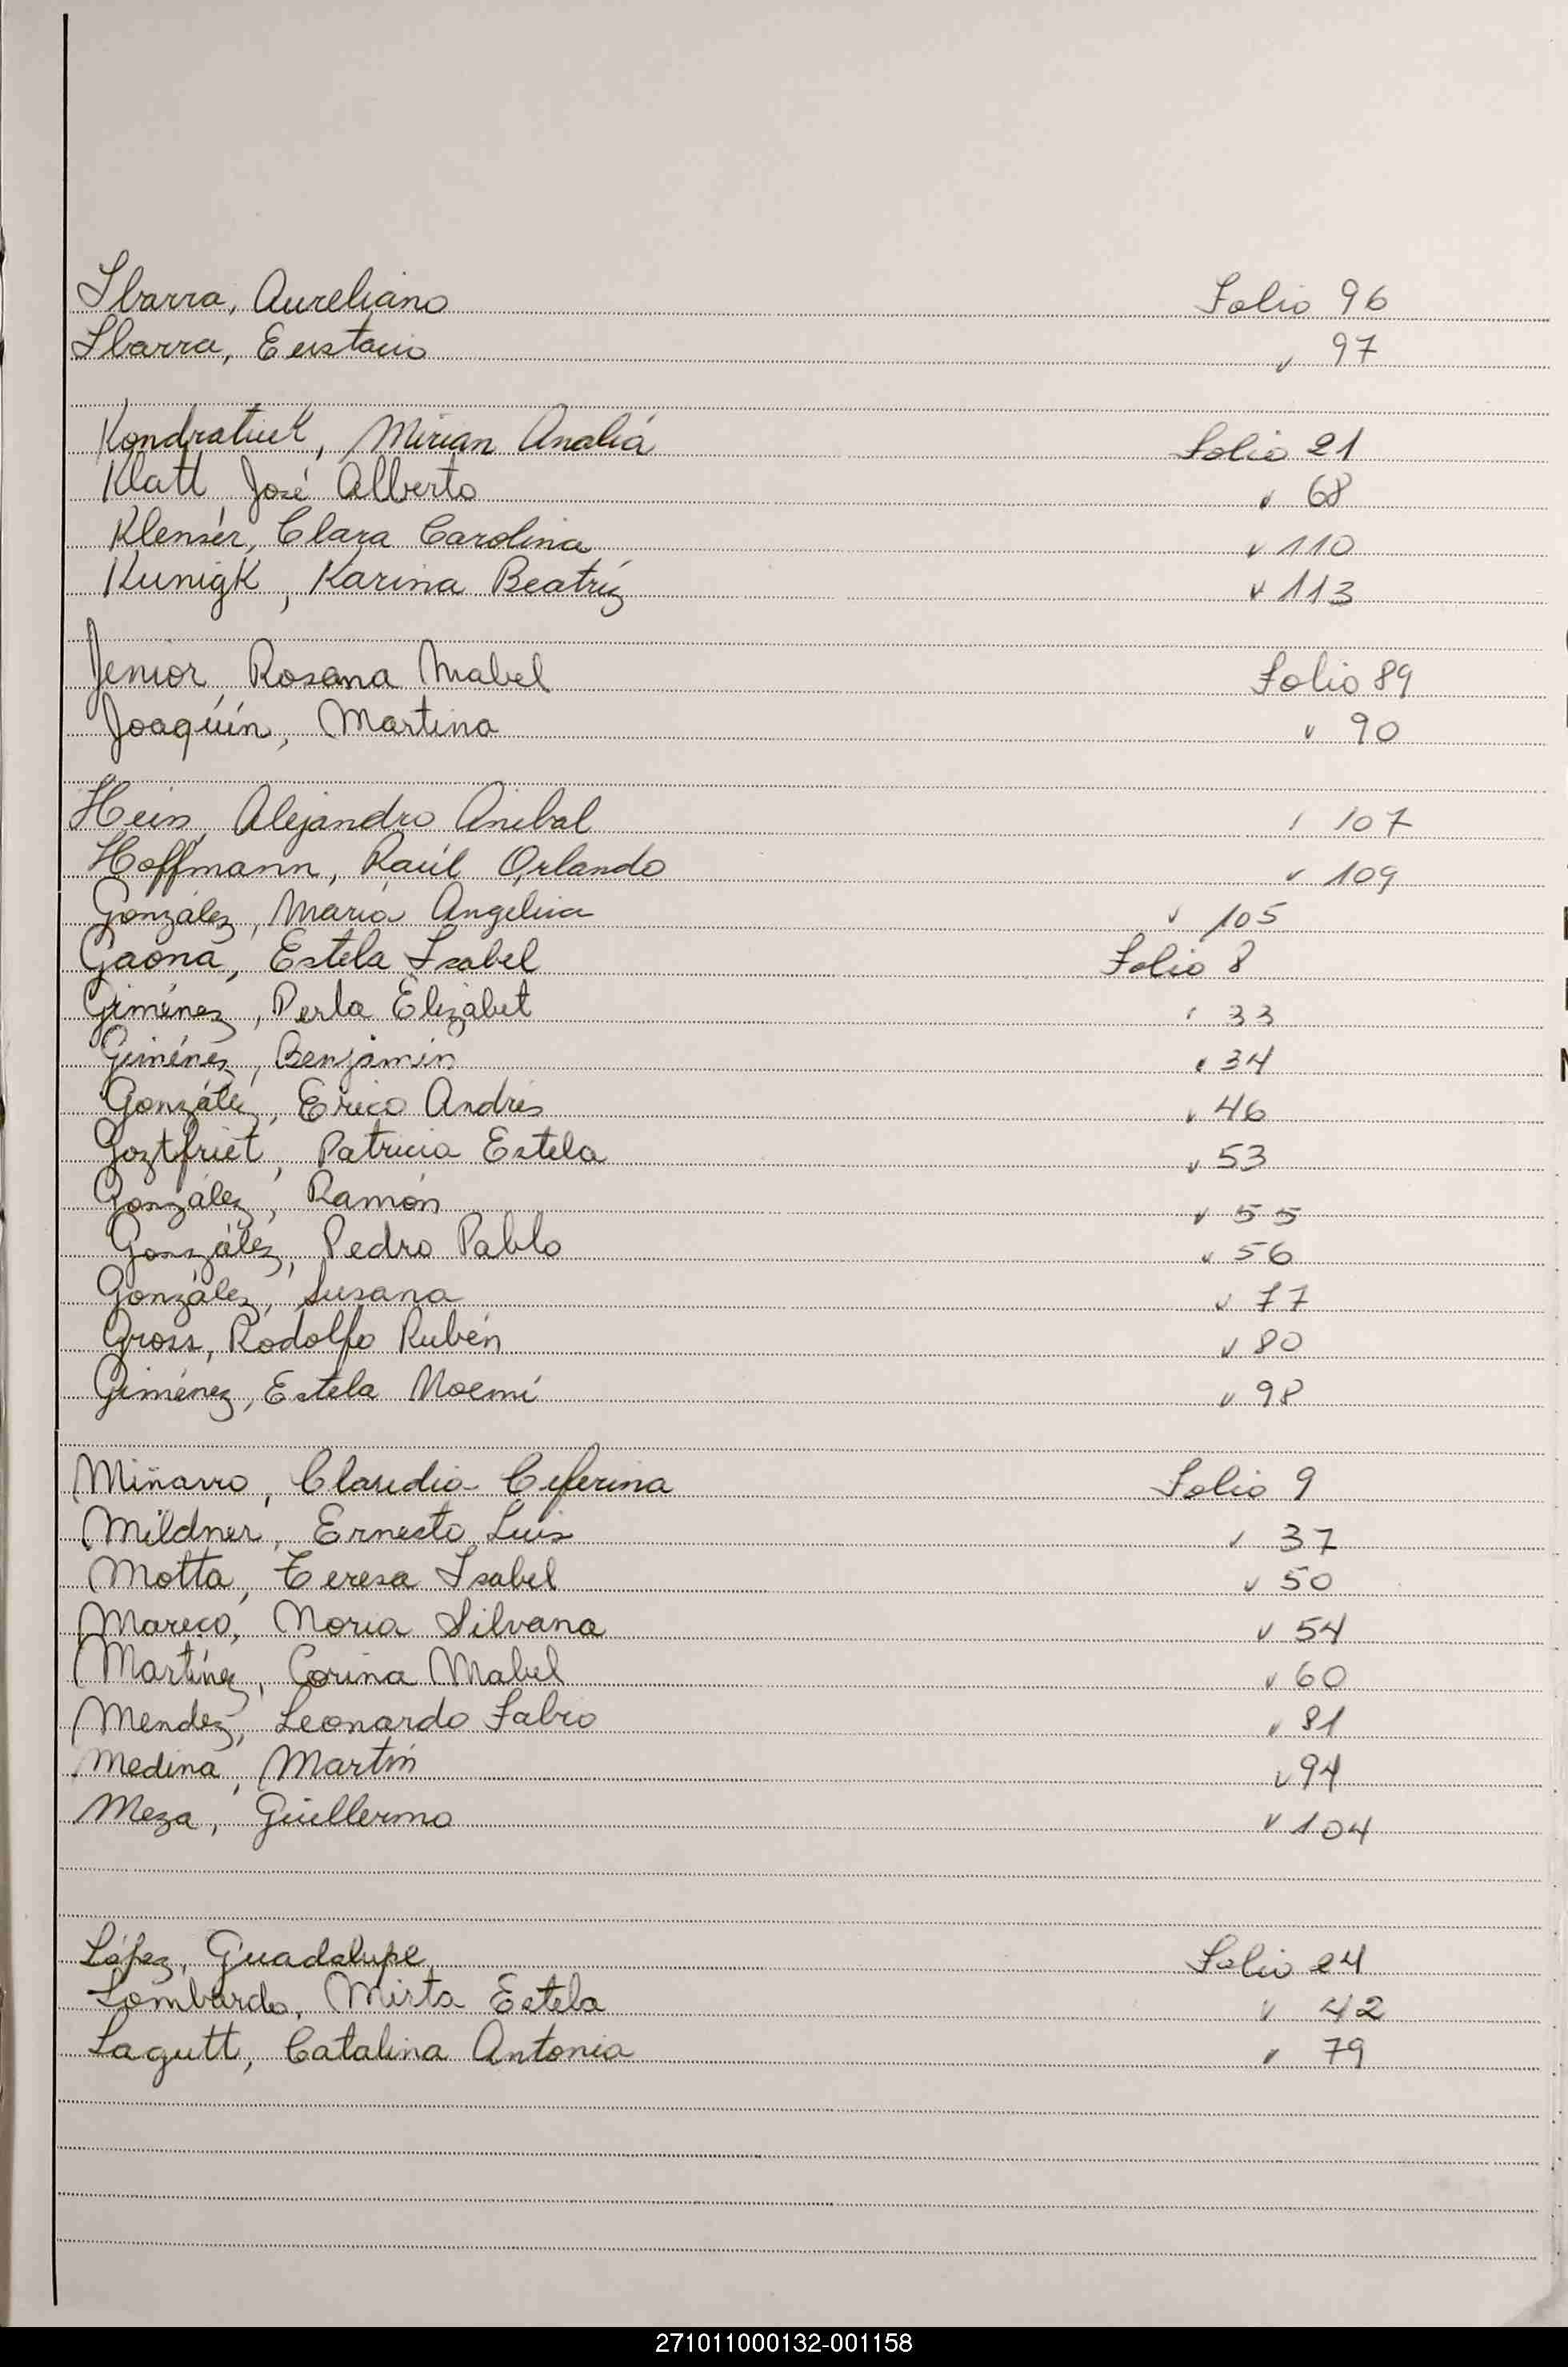 Ibarra, Aureliano Folio 96
Ibarra, Eustacio " 97
Kondratiuk, Mirian Analiá Folio 21
Klatt, José Alberto " 68
Klensér, Clara Carolina " 110
Kunigk, Karina Beatríz " 113
Jenior, Rosana Mabel Folio 89
Joaquín, Martina " 90
Hein, Alejandro Anibal " 107
Hoffmann, Raúl Orlando " 109
González, Maria Angelica " 105
Gaona, Estela Isabel Folio 8
Giménez, Perla Elizabet " 33
Giménez, Benjamín " 34
González, Erico Andrés " 46
Goztfriet, Patricia Estela " 53
González, Ramón " 55
González, Pedro Pablo " 56
González, Susana " 77
Gross, Rodolfo Rubén " 80
Giménez, Estela Noemí " 98
Miñarro, Claudia Ceferina Folio 9
Mildner, Ernesto Luis " 37
Motta, Teresa Isabel " 50
Mareco, Noria Silvana " 54
Martínez, Corina Mabel " 60
Mendez, Leonardo Fabio " 81
Medina, Martín " 94
Meza, Guillermo " 104
López, Guadalupe Folio 24
Lombardo, Mirta Estela " 42
Lagutt, Catalina Antonia " 79
271011000132-001158